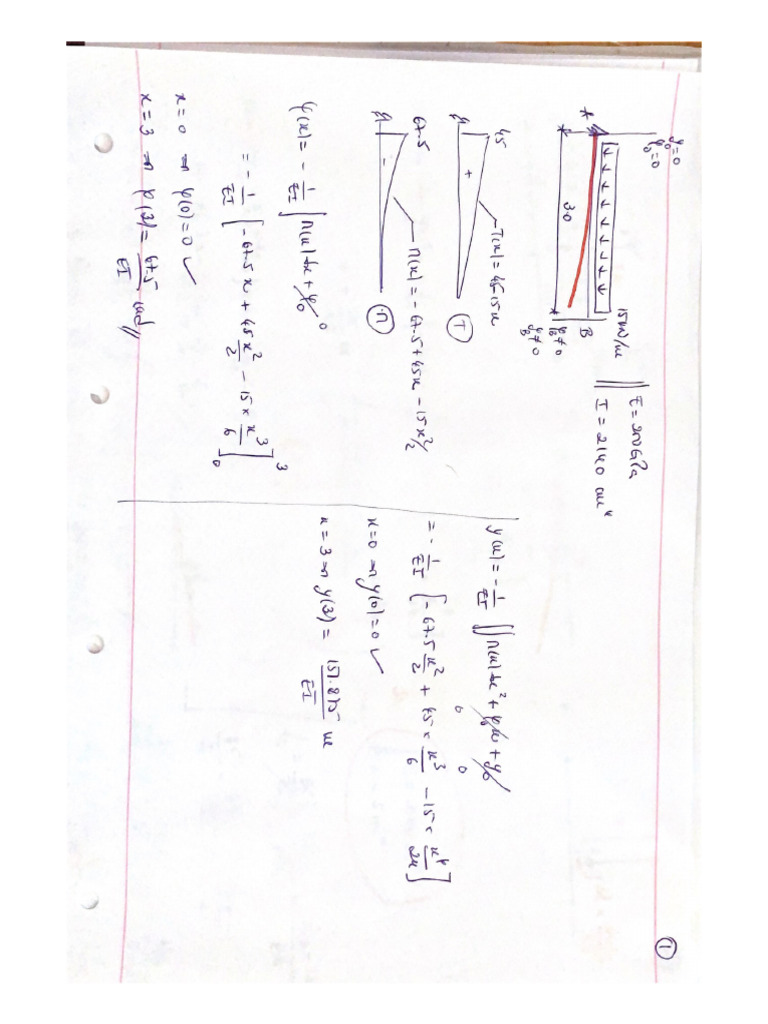 ①
y₀=0
φ₀=0
15 kN/m
A
B
3.0
φ_B ≠ 0
y_B ≠ 0
E = 200 GPa
I = 2140 cm⁴
45
+
T(x) = 45-15x
T
67.5
-
M(x) = -67.5+45x-15x²/2
M
φ(x) = - 1/EI ∫M(x) dx + φ₀ 0
= - 1/EI [-67.5x + 45x²/2 - 15 × x³/6]₀³
x=0 ⇒ φ(0)=0 ✓
x=3 ⇒ φ(3)= 67.5/EI rad //
y(x) = - 1/EI ∫∫M(x) dx² + φ₀x + y₀ 0 0
= - 1/EI [-67.5 x²/2 + 45 × x³/6 - 15 × x⁴/24]
x=0 ⇒ y(0)=0 ✓
x=3 ⇒ y(3) = 151.875/EI m